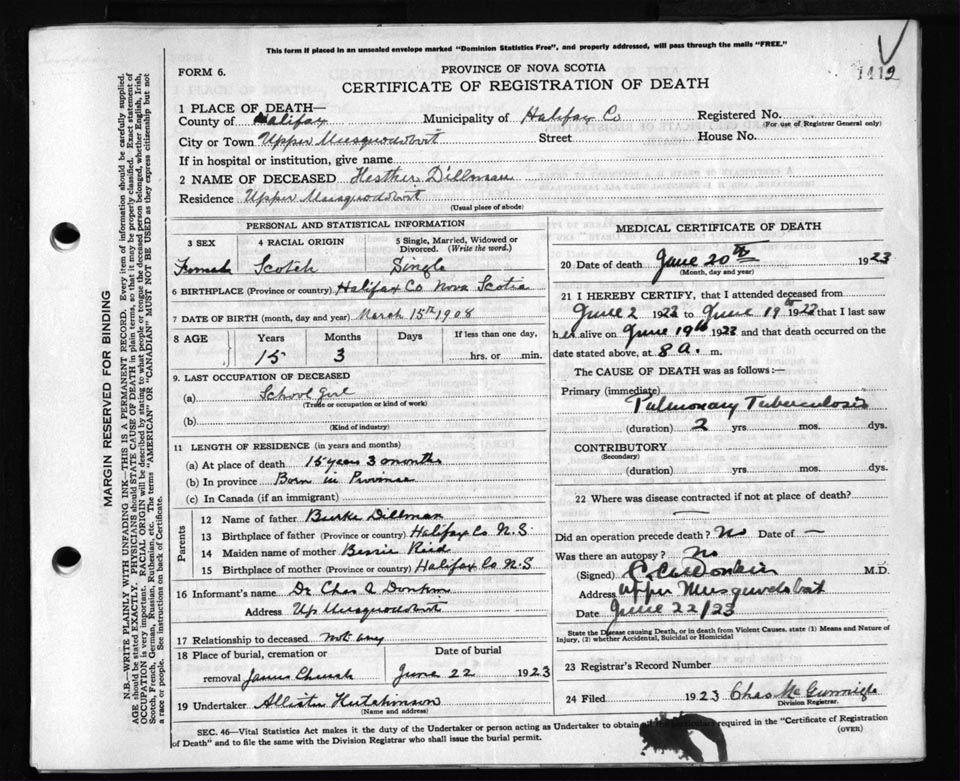 This form if placed in an unsealed envelope marked "Dominion Statistics Free", and properly addressed, will pass through the mails "FREE."
FORM 6.
PROVINCE OF NOVA SCOTIA
CERTIFICATE OF REGISTRATION OF DEATH
1 PLACE OF DEATH—
County of Halifax Municipality of Halifax Co Registered No.
(For use of Registrar General only)
City or Town Upper Musquodoboit Street House No.
If in hospital or institution, give name
2 NAME OF DECEASED Hesther Dillman
Residence Upper Musquodoboit
(Usual place of abode)
PERSONAL AND STATISTICAL INFORMATION
3 SEX 4 RACIAL ORIGIN 5 Single, Married, Widowed or Divorced. (Write the word.)
Female Scotch Single
6 BIRTHPLACE (Province or country) Halifax Co Nova Scotia
7 DATE OF BIRTH (month, day and year) March 15th 1908
8 AGE Years Months Days If less than one day,
15 3 hrs. or min.
9. LAST OCCUPATION OF DECEASED
(a) School girl
(Trade or occupation or kind of work)
(b)
(Kind of industry)
11 LENGTH OF RESIDENCE (in years and months)
(a) At place of death 15 years 3 months
(b) In province Born in Province
(c) In Canada (if an immigrant)
Parents
12 Name of father Burke Dillman
13 Birthplace of father (Province or country) Halifax Co N.S.
14 Maiden name of mother Bessie Reid
15 Birthplace of mother (Province or country) Halifax Co N.S
16 Informant's name Dr Chas A Donkin
Address Up Musquodoboit
17 Relationship to deceased not any
18 Place of burial, cremation or Date of burial
removal James Church June 22 1923
19 Undertaker Allister Hutchinson
(Name and address)
MEDICAL CERTIFICATE OF DEATH
20 Date of death June 20th 1923
(Month, day and year)
21 I HEREBY CERTIFY, that I attended deceased from
June 2 1923 to June 19th 1923 that I last saw
her alive on June 19th 1923 and that death occurred on
date stated above, at 8 a. m.
The CAUSE OF DEATH was as follows:—
Primary (immediate)
Pulmonary Tuberculosis
(duration) 2 yrs. mos. dys.
CONTRIBUTORY
(Secondary)
(duration) yrs. mos. dys.
22 Where was disease contracted if not at place of death?
—
Did an operation precede death? No Date of —
Was there an autopsy? No
(Signed) C. A. Donkin M.D.
Address Upper Musquodoboit
Date June 22/23
State the Disease causing Death, or in death from Violent Causes, state (1) Means and Nature of
Injury, (2) whether Accidental, Suicidal or Homicidal
23 Registrar's Record Number
24 Filed 1923 Chas McGunnigle
Division Registrar.
SEC. 46—Vital Statistics Act makes it the duty of the Undertaker or person acting as Undertaker to obtain all the particulars required in the "Certificate of Registration
of Death" and to file the same with the Division Registrar who shall issue the burial permit.
(OVER)
MARGIN RESERVED FOR BINDING
N.B.—WRITE PLAINLY WITH UNFADING INK—THIS IS A PERMANENT RECORD. Every item of information should be carefully supplied.
AGE should be stated EXACTLY. PHYSICIANS should STATE CAUSE OF DEATH in plain terms, so that it may be properly classified. Exact statement of
OCCUPATION is very important. RACIAL ORIGIN will be described by stating to what people or tongue the deceased person belonged, whether English, Irish,
Scotch, French, German, Russian, Ruthenian, etc. The terms "AMERICAN" or "CANADIAN" MUST NOT BE USED as they express citizenship but not
a race or people. See instructions on back of Certificate.